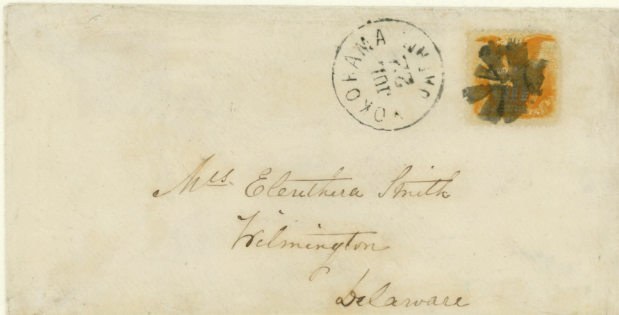 YOKOHAMA JAPAN
JUL
22
Mrs. Eleuthera Smith
Wilmington
Delaware